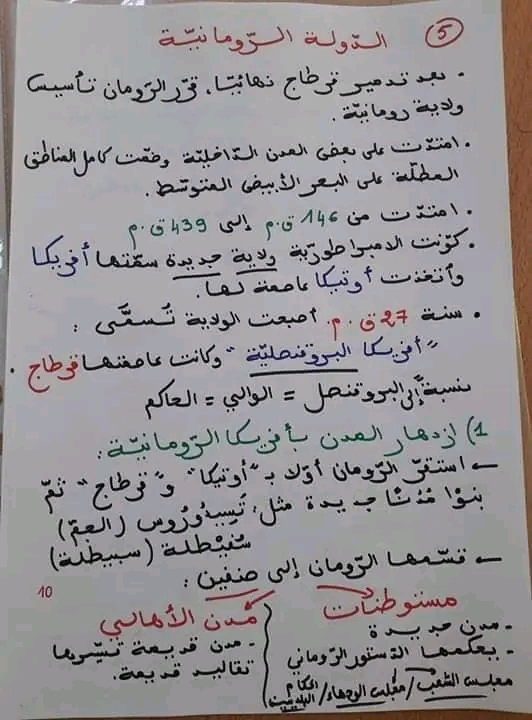 5 الدولة الرّومانيّة
• بعد تدمير قرطاج نهائيّا، قرّر الرّومان تأسيس
ولاية رومانيّة.
• امتدّت على بعض المدن الدّاخليّة وضمّت كامل المناطق
المطلّة على البحر الأبيض المتوسّط.
• امتدّت من 146 ق.م إلى 439 ق.م
• كوّنت الامبراطوريّة ولاية جديدة سمّتها أفريكا
وأتخذت أوتيكا عاصمة لها.
• سنة 27 ق.م. أصبحت الولاية تُسمَّى :
"أفريكا البروقنصليّة" وكانت عاصمتها قرطاج.
نسبة إلى البروقنصل = الوالي = الحاكم
1) ازدهار المدن بأفريكا الرّومانيّة :
← استقرّ الرّومان أوّلا بـ "أوتيكا" و"قرطاج" ثمّ
بنوا مُدنًا جديدة مثل: تيسدُرُوس (الجمّ)
سُفيْطلة (سبيطلة)
← قسّمها الرّومان إلى صنفين :
10
مستوطنات
- مدن جديدة
- يحكمها الدّستور الرّوماني
مجلس الشّعب / مجلس الوجهاء / الحكّام
مدن الأهالي
- مدن قديمة تسيّرها
تقاليد قديمة.